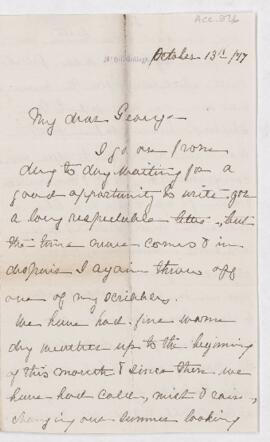 Acc. 826
October 13th/77
My dear George
I go on from
day to day waiting for a
good opportunity to write you
a long respectable letter, but
the time never comes & in
dispair I again throw off
one of my scribbles.
We have had fine warm
dry weather up to the begining
of this month & since then we
have had cold, mist & rain,
changing our summer looking